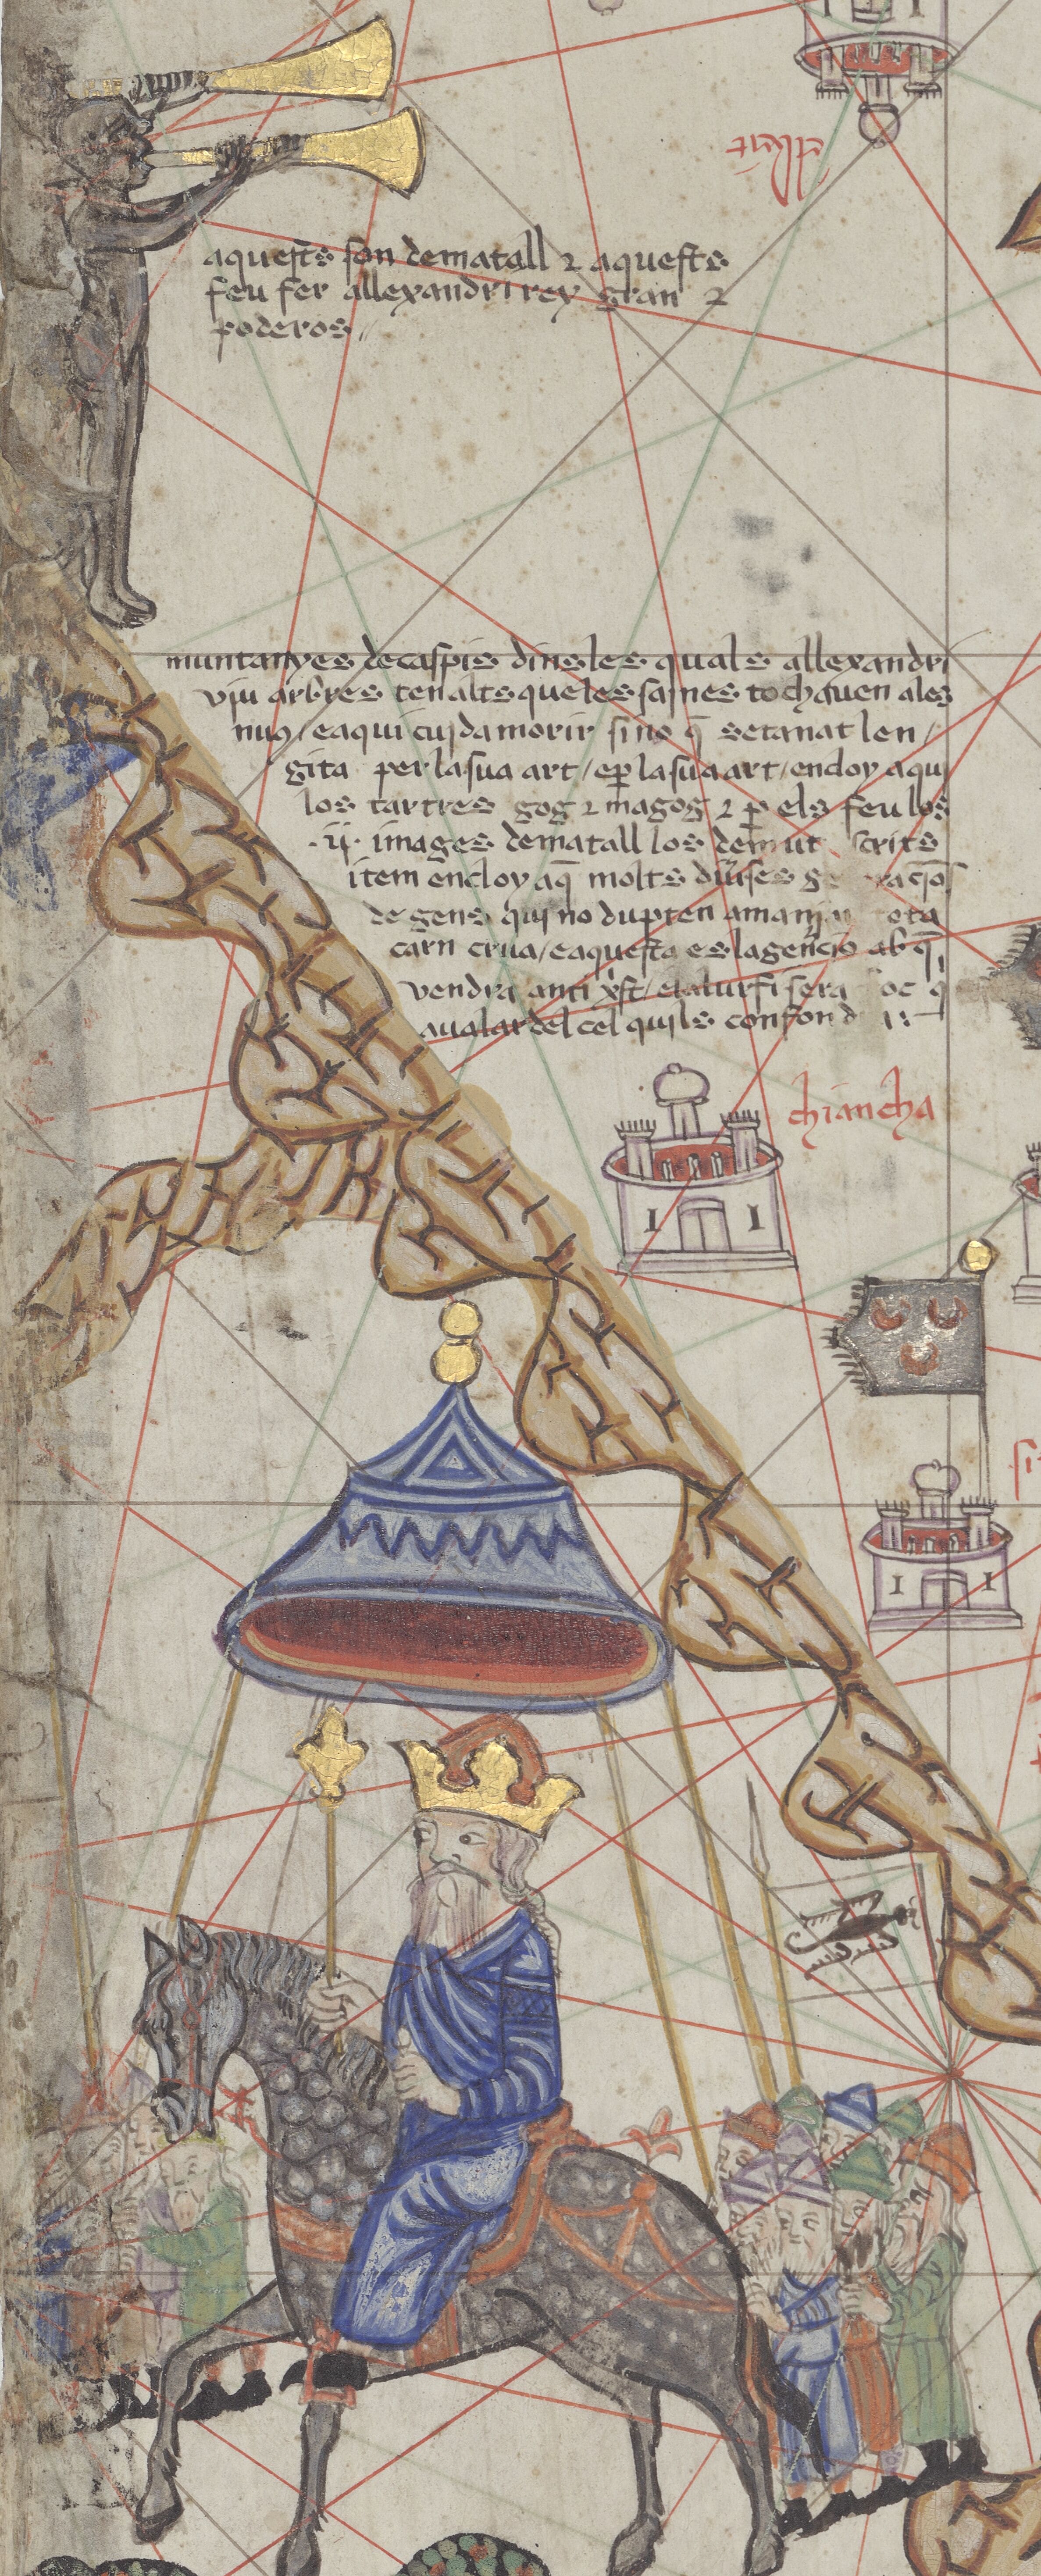 elbeit
aquests son de matall ⁊ aquests
feu fer allexandri rey gran ⁊
poderos
muntanyes de caspis dins les quals allexandri
viu arbres ten alts que les saines tochauen a les
nuus / e aqui cuida morir sino q̄ setanat len /
gita per la sua art / e ꝑ la sua art / encloy aqui
los tartres gog ⁊ magog ⁊ ꝑ els feu los
.ij. images de matall los demut scrits
item encloy aq̄ molts diuses
de gens qui no dupten a maniar tota
carn crua / e aquesta es la gen̄cio ab q̄
vendra anti xp̄st / e la lur fi sera oc q̄
aualar del cel qui ls confond
chiancha